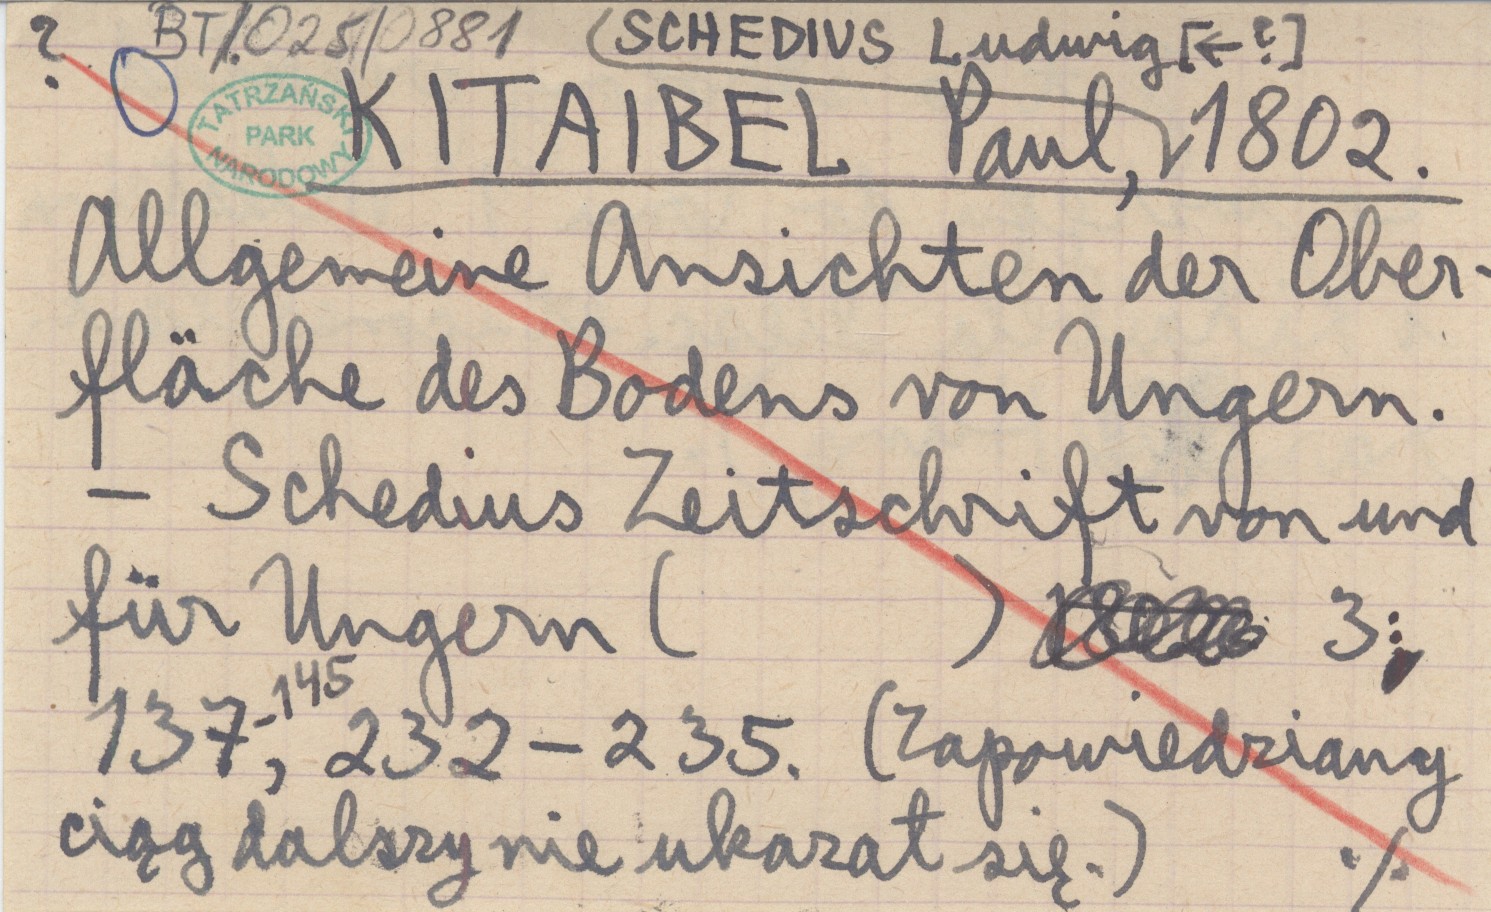 ? BT/025/0881 (SCHEDIUS Ludwig [←?]
TATRZAŃSKI PARK NARODOWY
KITAIBEL Paul, 1802.
Allgemeine Ansichten der Ober-
fläche des Bodens von Ungern.
— Schedius Zeitschrift von und
für Ungern ( ) 3:
137-145, 232-235. (Zapowiedziany
ciąg dalszy nie ukazał się.) ./.